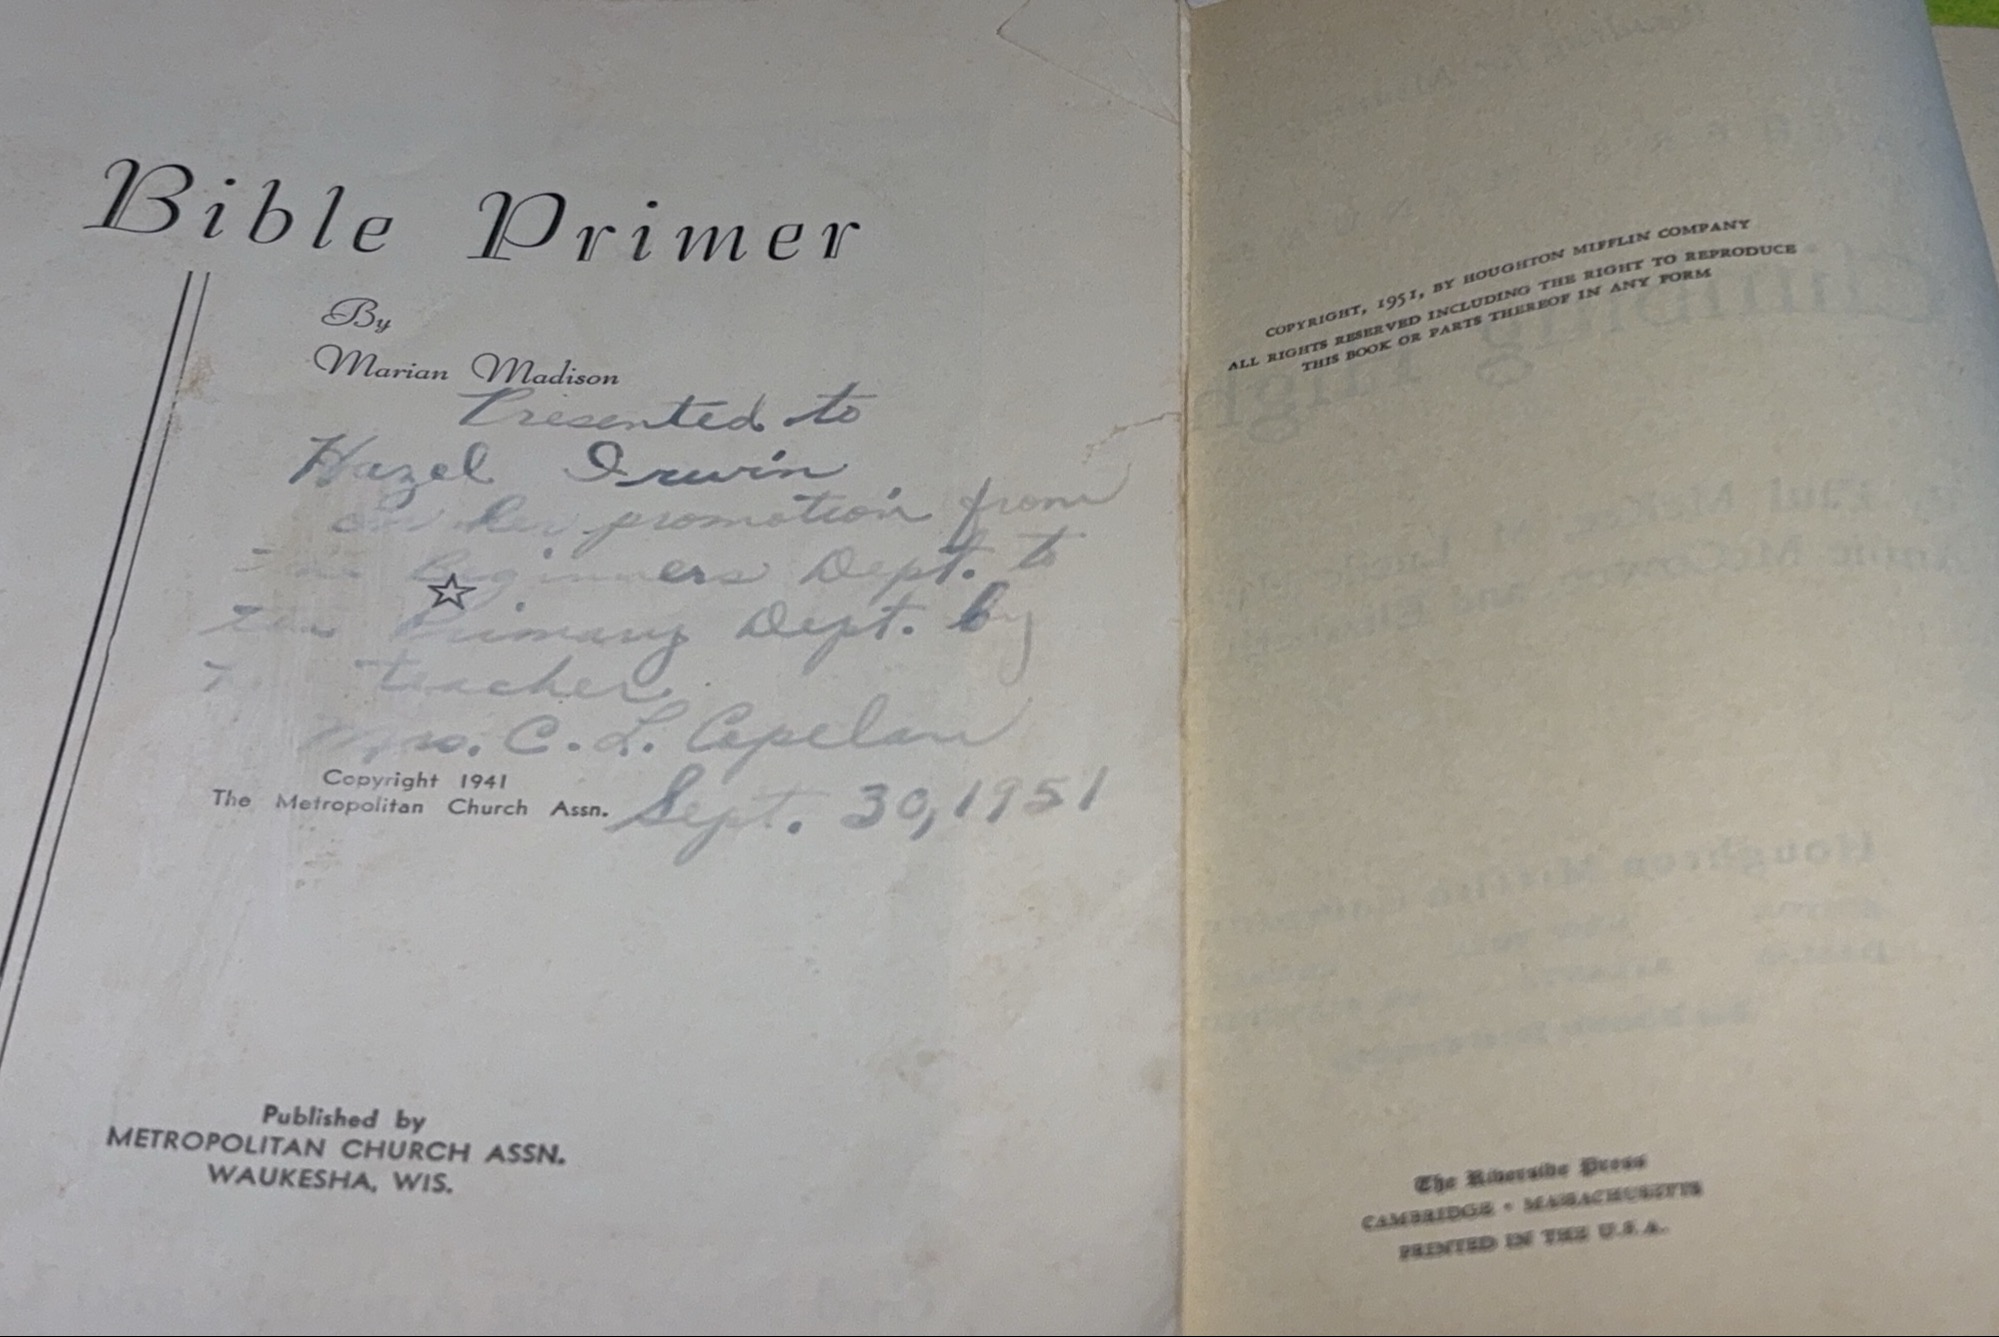 Bible Primer
By
Marian Madison
Presented to
Hazel Irwin
on her promotion from
Beginners Dept. to
the Primary Dept. by
teacher
Mrs. C. L. Copelan
Copyright 1941
The Metropolitan Church Assn.
Sept. 30, 1951
Published by
METROPOLITAN CHURCH ASSN.
WAUKESHA, WIS.
COPYRIGHT, 1951, BY HOUGHTON MIFFLIN COMPANY
ALL RIGHTS RESERVED INCLUDING THE RIGHT TO REPRODUCE
THIS BOOK OR PARTS THEREOF IN ANY FORM
The Riverside Press
CAMBRIDGE • MASSACHUSETTS
PRINTED IN THE U.S.A.